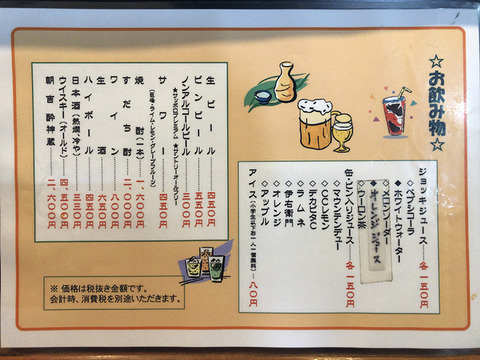 ☆お飲み物☆
ジョッキジュース……各一五〇円
◇ペプシコーラ
◆ホワイトウォーター
◇メロンソーダー
◆オレンジジュース
◇ウーロン茶
缶・ビン入りジュース…各一五〇円
◇マウンテンデュー
◇CCレモン
◇デカビタC
◇ラムネ
◇伊右衛門
◇オレンジ
◇アップル
アイス(小学生以下お一人一個無料)……八〇円
生ビール……四五〇円
ビンビール……五五〇円
ノンアルコールビール……三〇〇円
★サッポロプレミアム ★サントリーオールフリー
サワー……四五〇円
(巨峰・ライム・レモン・グレープフルーツ)
焼酎(一本)……一、六〇〇円
すだち酎……二、〇〇〇円
ワイン……八〇〇円
生酒
ハイボール
日本酒(熱燗、冷や)
ウイスキー(オールド)……四、五〇〇円
朝吉酔神蔵……二、六〇〇円
※ 価格は税抜き金額です。
会計時、消費税を別途いただきます。